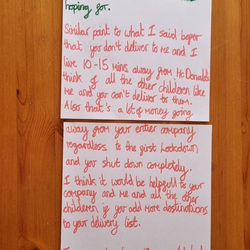 hoping for.
Similar point to what I said before
that you don't deliver to me and I
live 10-15 mins away from McDonalds
think of all the other children like
me and you can't deliver to them.
Also that's a lot of money going
away from your entier company
regardless to the first lockdown
and you shut down completely.
I think it would be helpfull to your
company and me and all the other
children if you add more destinations
to your delivery list.